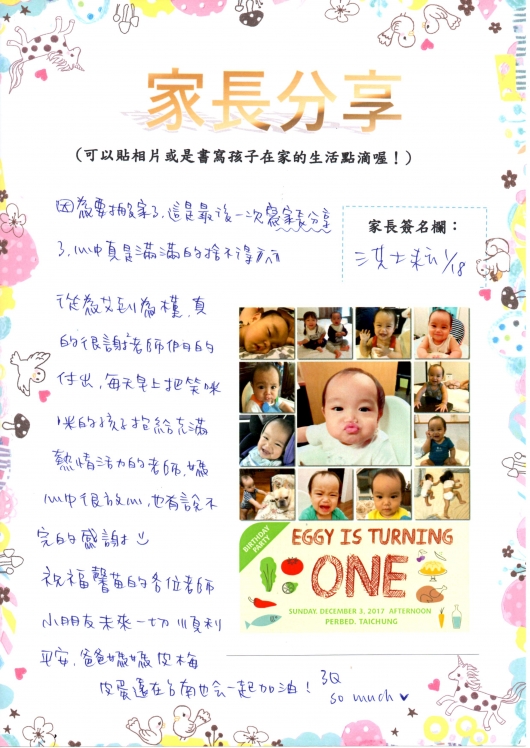 家長分享
(可以貼相片或是書寫孩子在家的生活點滴喔!)
因為要搬家了,這是最後一次寫家長分享
了,心中真是滿滿的捨不得
家長簽名欄:
1/18
從
真
的很謝老師們的
付出,每天早上把笑咪
咪的孩子抱給充滿
熱情活力的老師,媽
心中很放心,也有說不
完的感謝
祝福馨苗的各位老師
小朋友未來一切順利
平安,爸爸媽媽皮梅
皮蛋還在台南也會一起加油!3Q
so much
BIRTHDAY
PARTY
EGGY IS TURNING
ONE
SUNDAY. DECEMBER 3, 2017 AFTERNOON
PERBED. TAICHUNG